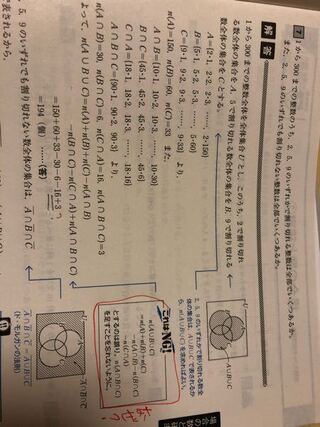 7 1から300までの整数のうち，2，5，9のいずれかで割り切れる整数は全部でいくつあるか。
また，2，5，9のいずれでも割り切れない整数は全部でいくつあるか。
解答
1から300までの整数全体を全体集合Uとし，このうち，2で割り切れ
る数全体の集合をA，5で割り切れる数全体の集合をB，9で割り切れる
数全体の集合をCとする。
A={2·1, 2·2, 2·3, ……, 2·150}
B={5·1, 5·2, 5·3, ……, 5·60}
C={9·1, 9·2, 9·3, ……, 9·33} より，
n(A)=150, n(B)=60, n(C)=33 また，
A∩B={10·1, 10·2, 10·3, ……, 10·30}
B∩C={45·1, 45·2, ……, 45·6}
C∩A={18·1, 18·2, 18·3, ……, 18·16}
A∩B∩C={90·1, 90·2, 90·3} より，
n(A∩B)=30, n(B∩C)=6, n(C∩A)=16, n(A∩B∩C)=3
よって，n(A∪B∪C)=n(A)+n(B)+n(C)−n(A∩B)
−n(B∩C)−n(C∩A)+n(A∩B∩C)
=150+60+33−30−6−16+3
=194（個）……(答)
2，5，9のいずれでも割り切れない数全体の集合は，A̅∩B̅∩C̅
表されるから，
U
A∪B∪C
2，5，9のいずれかで割り切れる数全
体の集合は，A∪B∪Cで表されるか
ら，n(A∪B∪C)を求めればよい。
これはNG!
n(A∪B∪C)
=n(A)+n(B)+n(C)
−n(A∩B)−n(B∩C)
−n(C∩A)
とするのは誤り。n(A∩B∩C)
を足すことを忘れないように。
なぜ？
U
A̅∩B̅∩C̅
A̅∩B̅∩C̅=A∪B∪C
(ド・モルガンの法則)
場合の数